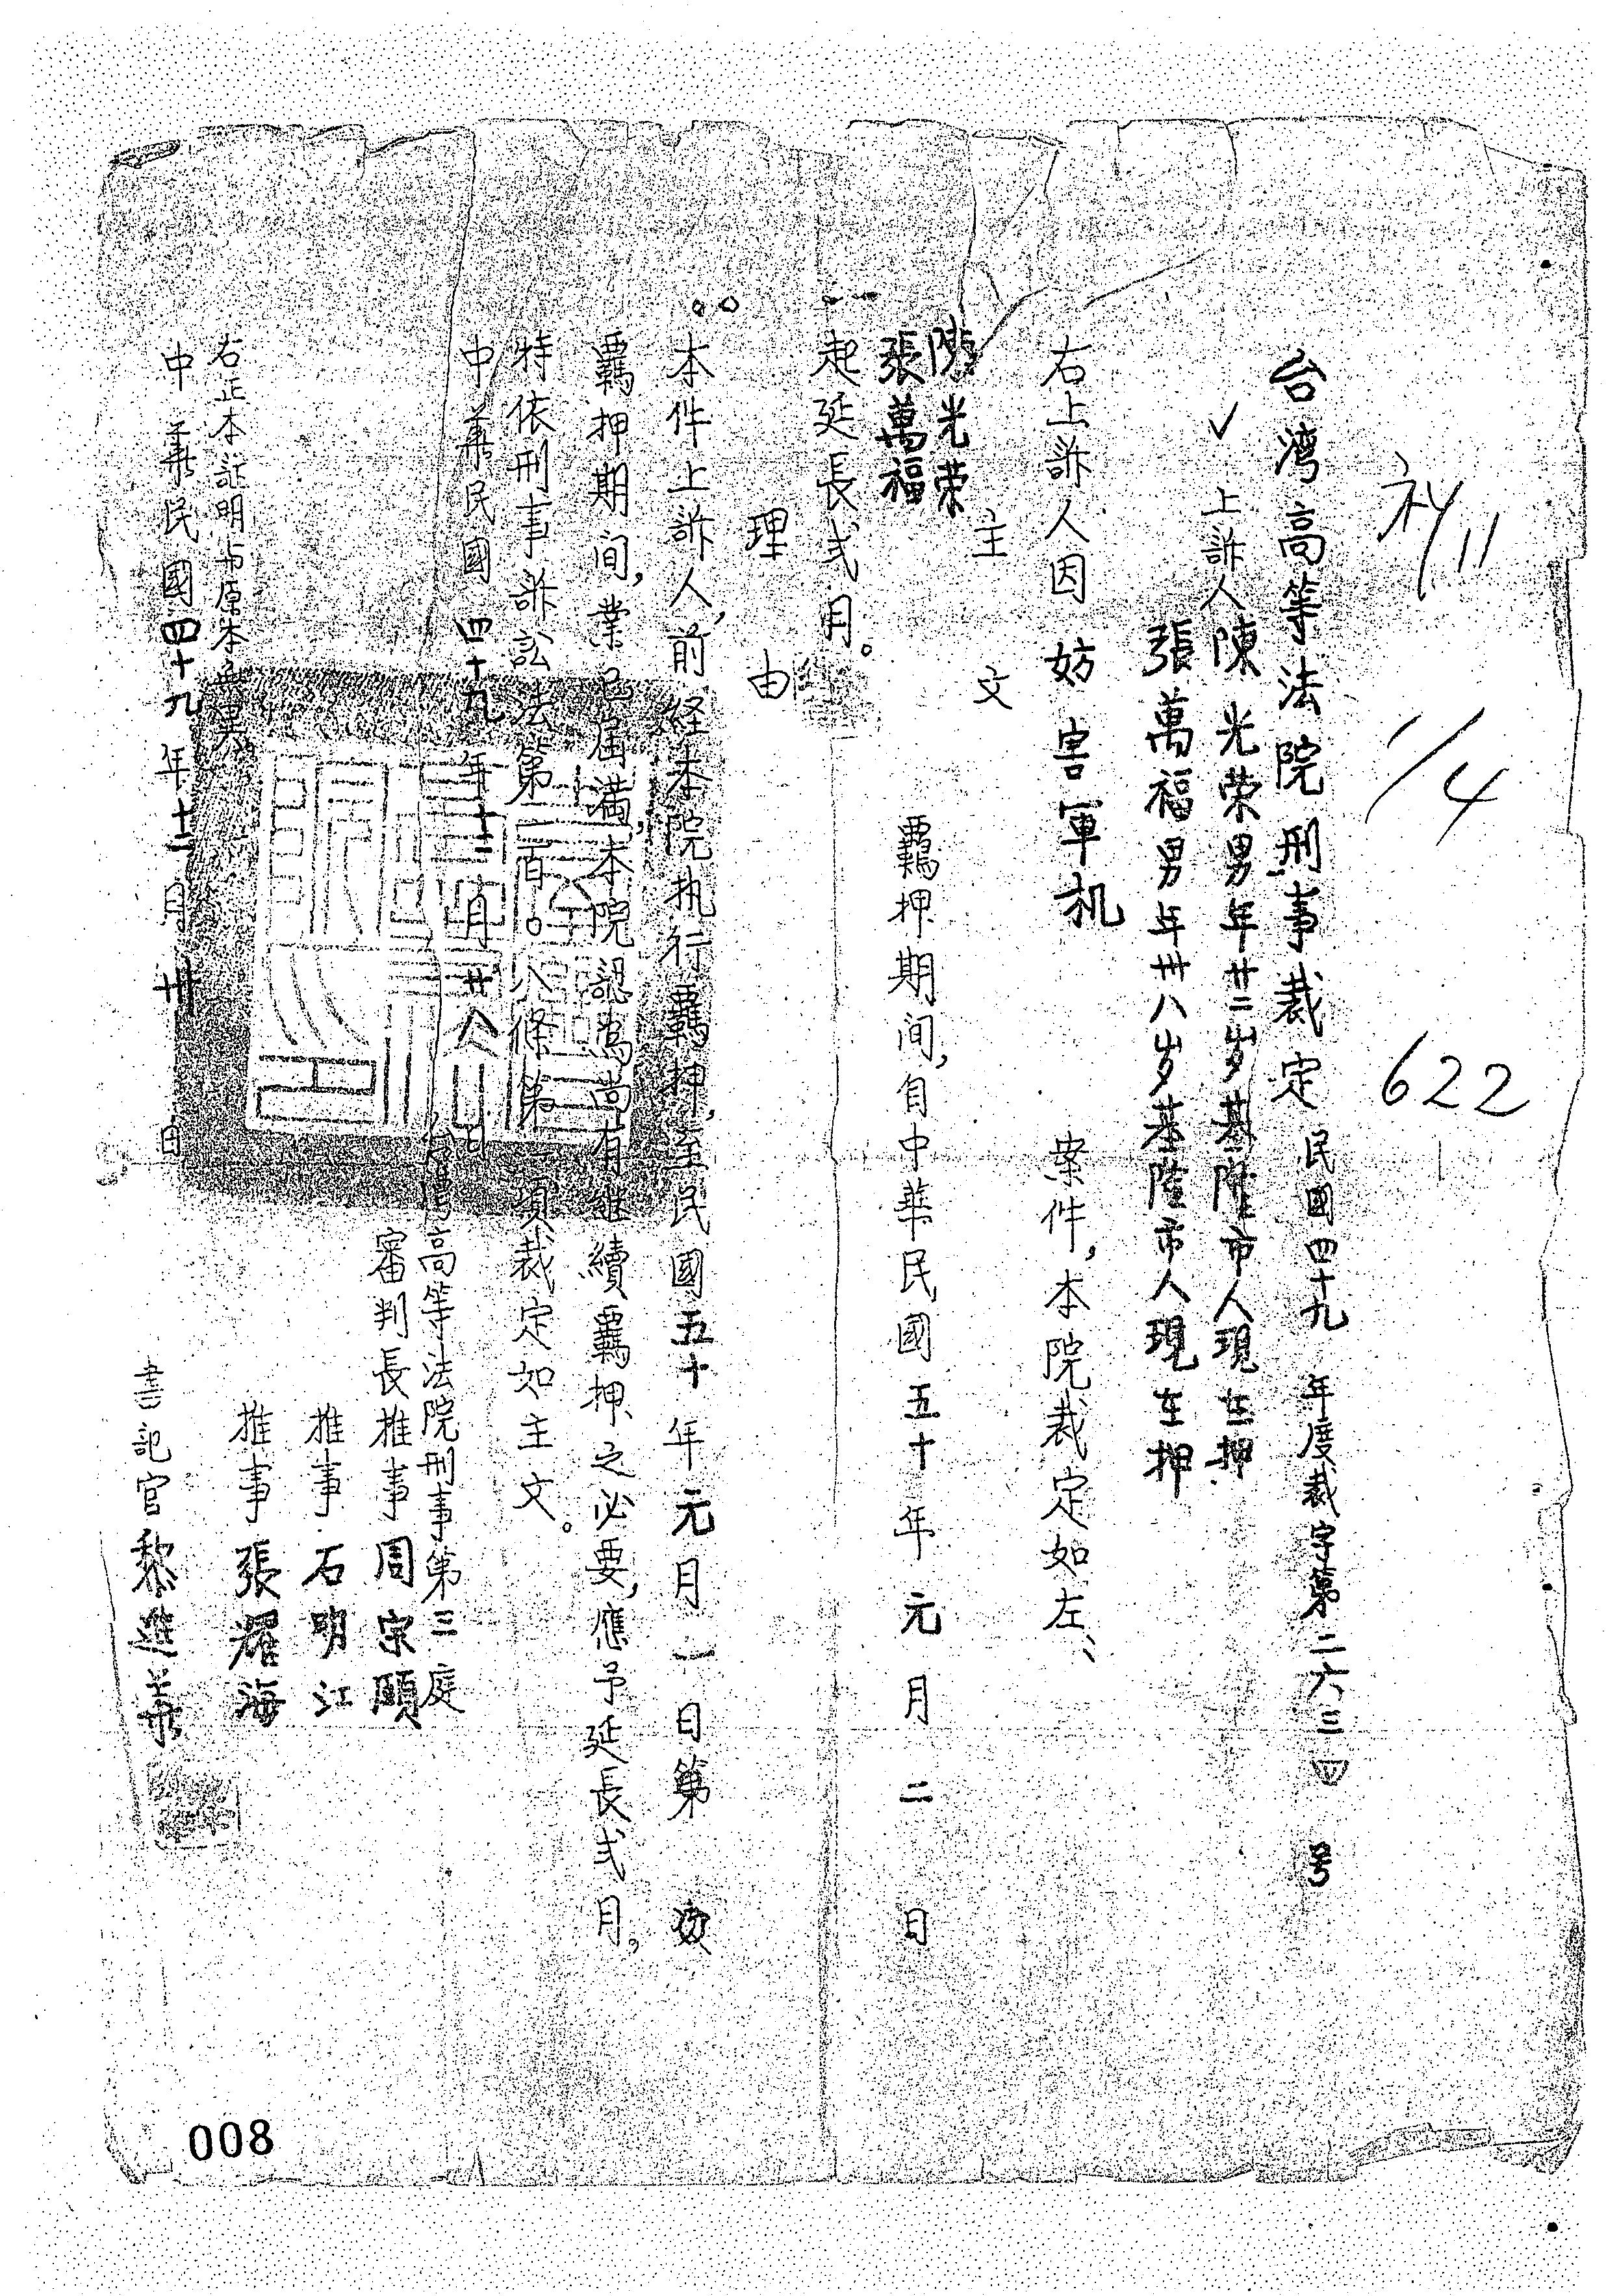 11
1/4
622
台灣高等法院刑事裁定 民國四十九年度裁字第二六三四号
✓上訴人陳光荣男年廿二岁基隆市人現在押
張萬福男年卅八岁基隆市人現在押
右上訴人因妨害軍机案件，本院裁定如左：
主文
陳光荣
張萬福
羈押期间，自中華民國五十年元月二日
起延長弍月。
理由
本件上訴人，前経本院执行羈押，至民國五十年元月一日第次
羈押期间，業已屆滿，本院認為尚有継續羈押之必要，應予延長弍月。
特依刑事訴訟法第一百〇八條第一項裁定如主文。
中華民國四十九年十二月廿八日
台灣高等法院刑事第三庭
審判長推事周宗頤
推事石明江
推事張耀海
右正本証明与原本無異
中華民國四十九年十二月卅日
書記官黎進義
008